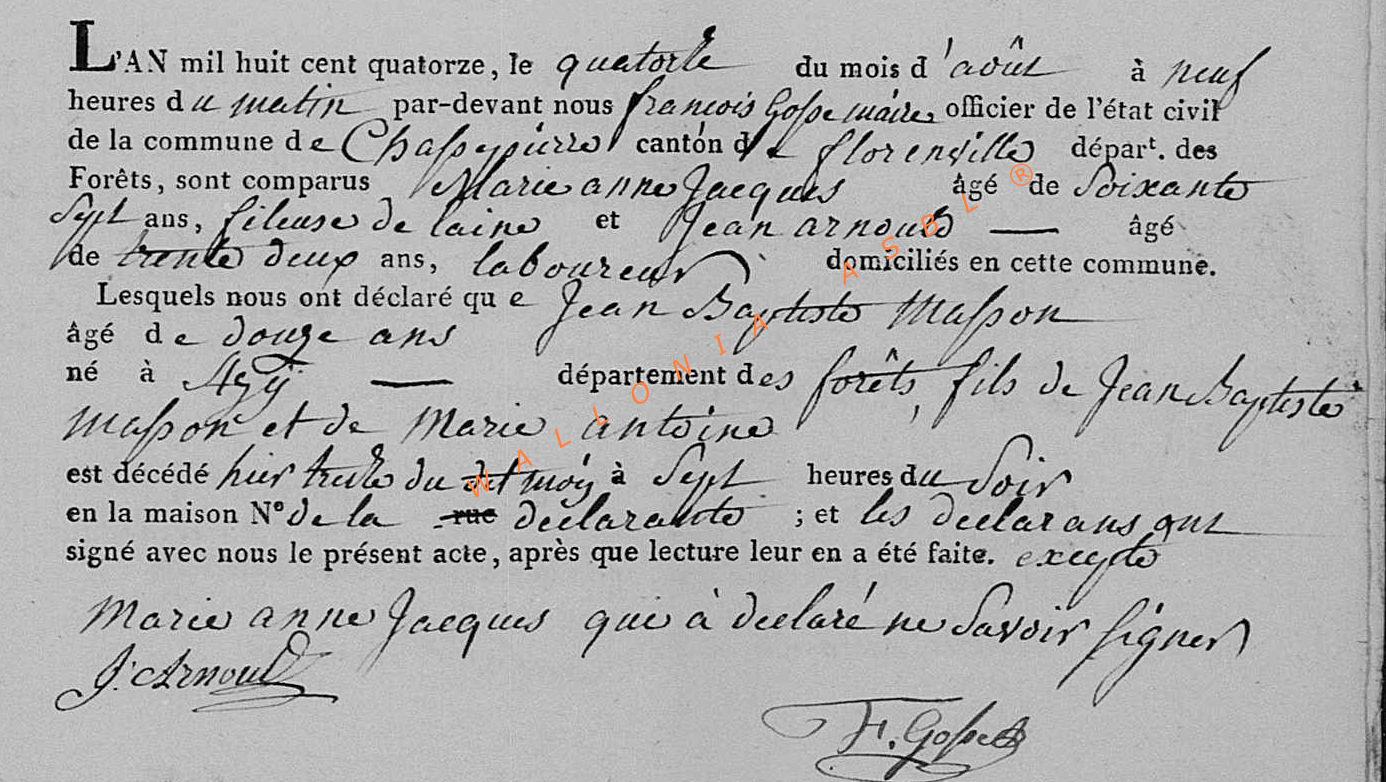 L'AN mil huit cent quatorze, le quatorze du mois d'août à neuf
heures du matin par-devant nous francois Gosse maire officier de l'état civil
de la commune de Chassepierre canton de florenville départ. des
Forêts, sont comparus Marie anne Jacques âgé de Soixante
Sept ans, fileuse de laine et Jean arnould — âgé
de trente deux ans, laboureur domiciliés en cette commune.
Lesquels nous ont déclaré que Jean Baptiste Masson
âgé de douze ans
né à Azÿ — département des forêts, fils de Jean Baptiste
Masson et de Marie antoine
est décédé hier treize du dit moÿ à Sept heures du Soir
en la maison N° de la rue declarante ; et les declarans ont
signé avec nous le présent acte, après que lecture leur en a été faite. excepte
Marie anne Jacques qui à declaré ne Savoir signer
J. Arnould
F. Gosse
WALLONIA ASBL ®